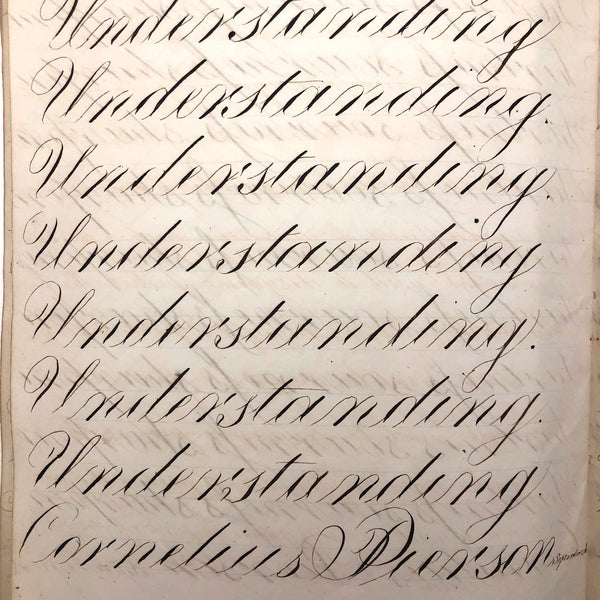 Understanding
Understanding.
Understanding.
Understanding
Understanding.
Understanding.
Understanding.
Cornelius Pierson